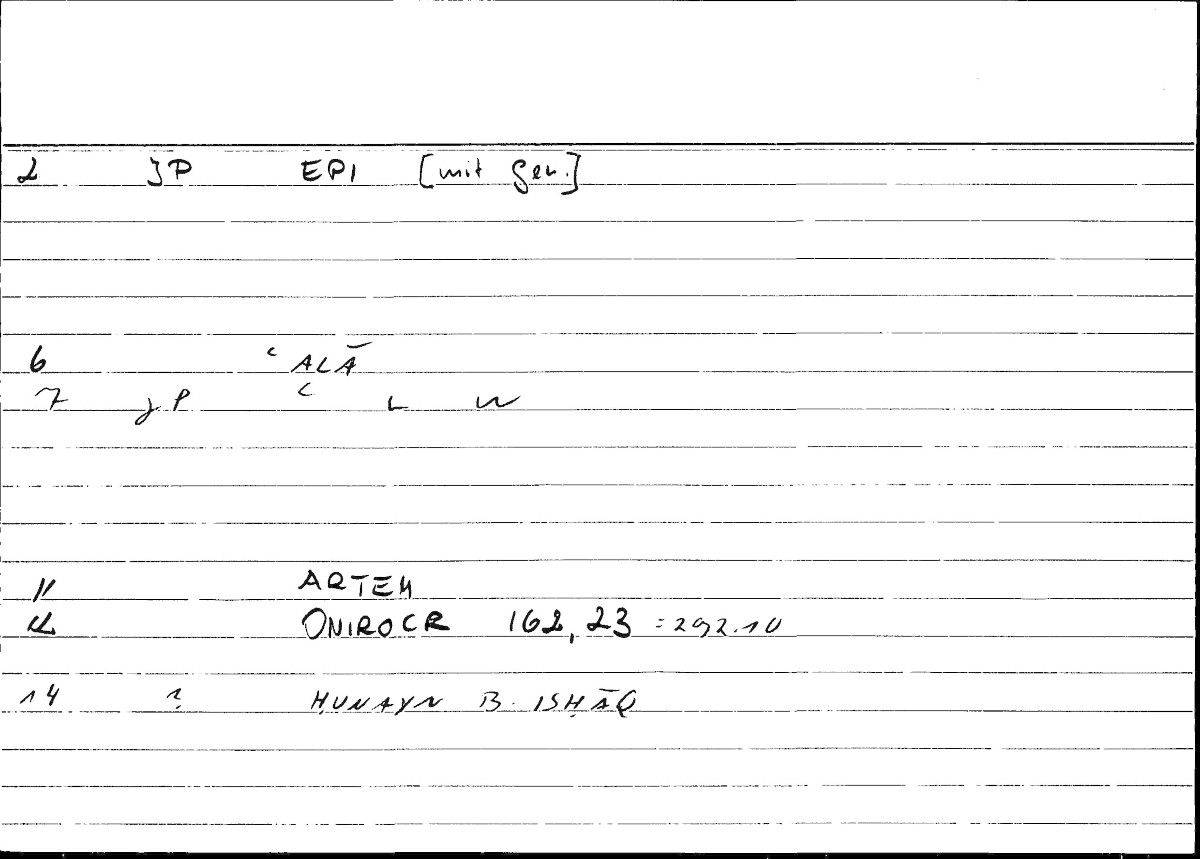 2 JP EPI [mit Gen.]
6 ʿALĀ
7 JP ʿ L W
11 ARTEM
12 ONIROCR 162,23 = 292.10
14 ? ḤUNAYN B. ISḤĀQ